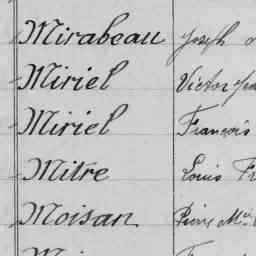 Mirabeau Joseph
Miriel Victor
Miriel François
Mitre Louis
Moisan Pierre